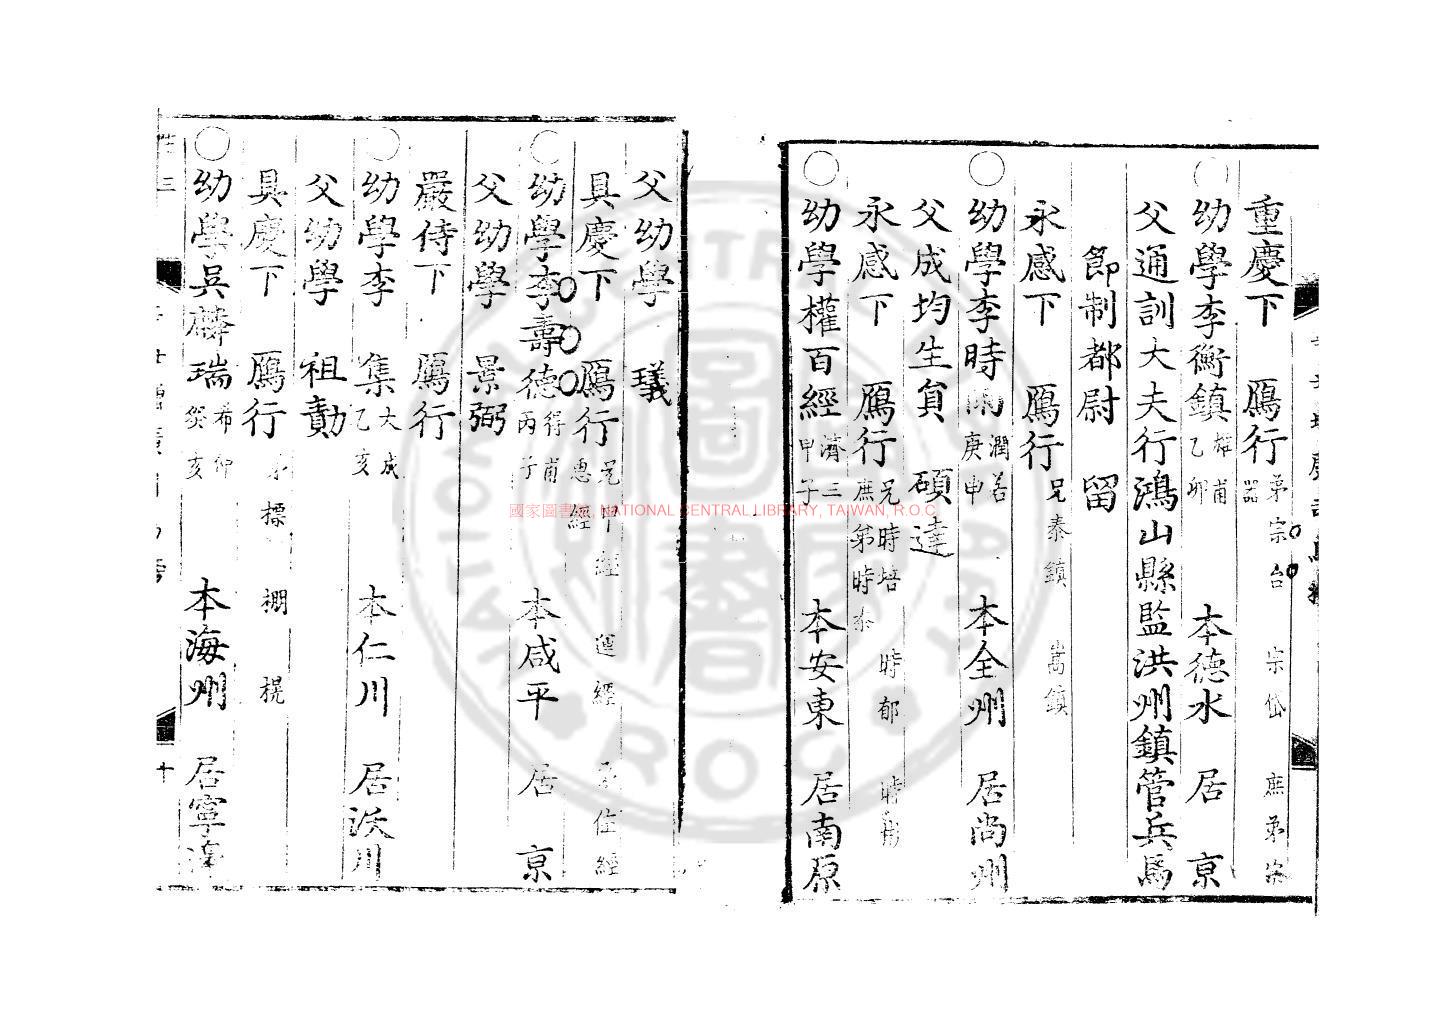 重慶下 鴈行 弟宗台 宗岱 庶弟宗器
幼學李衡鎮 雄甫乙卯 本德水 居京
父通訓大夫行鴻山縣監洪州鎮管兵馬
節制都尉 留
永感下 鴈行 兄泰鎮 嵩鎮
幼學李時 潤若庚申 本全州 居尚州
父成均生員 碩達
永感下 鴈行 兄時培 時郁 時 庶弟時泰
幼學權百經 濟三甲子 本安東 居南原
父幼學 璣
具慶下 鴈行 兄 經 運經 經
幼學李壽德 得甫丙子 本咸平 居京
父幼學 景弼
嚴侍下 鴈行
幼學李集 大成乙亥 本仁川 居沃川
父幼學 祖勣
具慶下 鴈行 弟標 棚 榥
幼學吳麟瑞 希仰癸亥 本海州 居寧海
國家圖書館, NATIONAL CENTRAL LIBRARY, TAIWAN, R.O.C